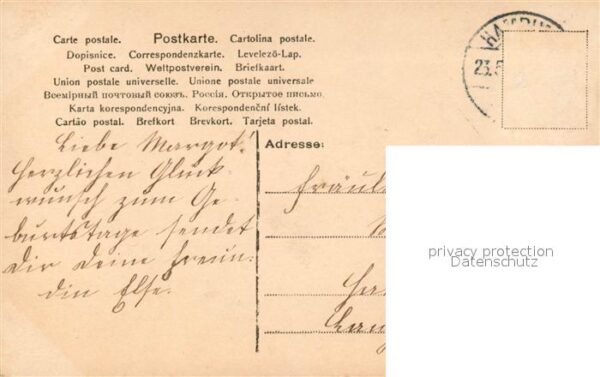 Carte postale. Postkarte. Cartolina postale.
Dopisnice. Correspondenzkarte. Levelező-Lap.
Post card. Weltpostverein. Briefkaart.
Union postale universelle. Unione postale universale
Всемірный почтовый союзъ. Россія. Открытое письмо.
Karta korespondencyjna. Korespondenční lístek.
Cartão postal. Brefkort Brevkort. Tarjeta postal.
HAMBU
23.
Liebe Margot!
Herzlichen Glück-
wunsch zum Ge-
burtstage sendet
Dir Deine Freun-
din Else.
Adresse:
Fräul
Ha
privacy protection
Datenschutz